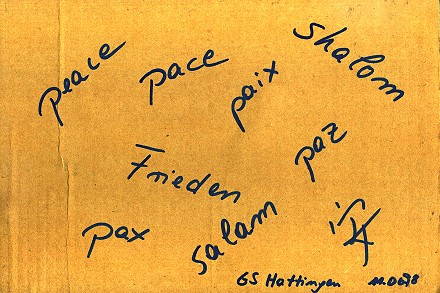 peace
pace
paix
Shalom
Frieden
paz
pax
salam
GS Hattingen